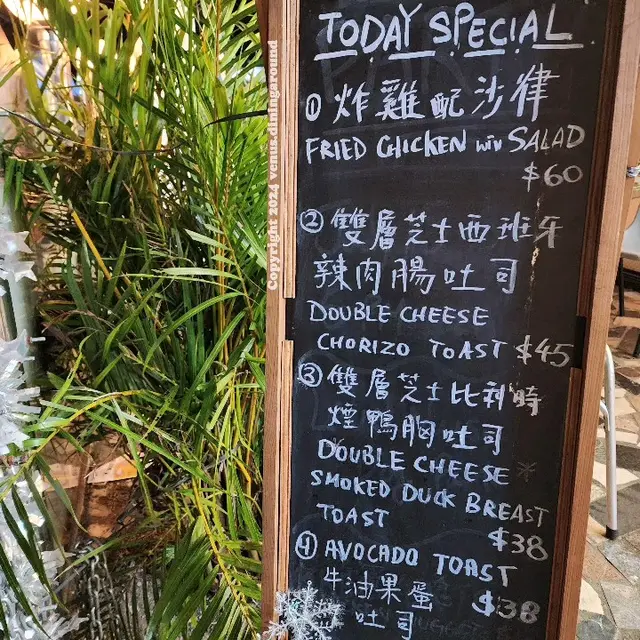 TODAY SPECIAL
① 炸雞配沙律
FRIED CHICKEN w/v SALAD
$60
② 雙層芝士西班牙
辣肉腸吐司
DOUBLE CHEESE
CHORIZO TOAST $45
③ 雙層芝士比利時
煙鴨胸吐司
DOUBLE CHEESE
SMOKED DUCK BREAST
TOAST
$38
④ AVOCADO TOAST
牛油果蛋 $38
吐司
Copyright 2024 venus.diningaround